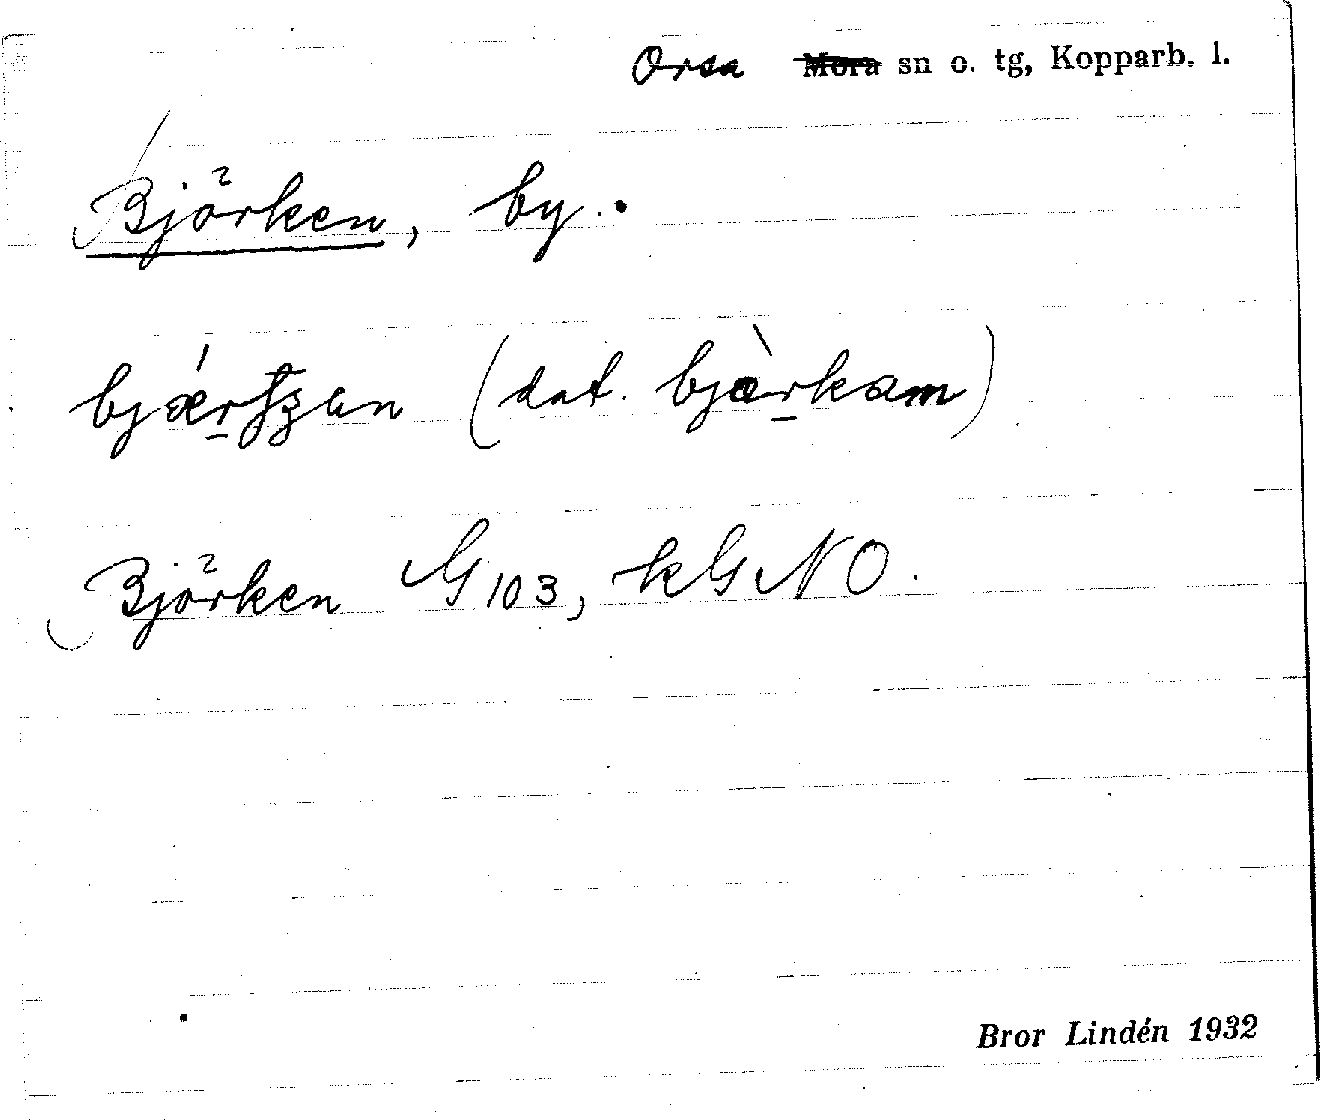 Orsa ~~Mora~~ sn o. tg, Kopparb. l.
Björken, by.
(dat. bjàr̠kam)
Björken G 103, kG NO.
Bror Lindén 1932